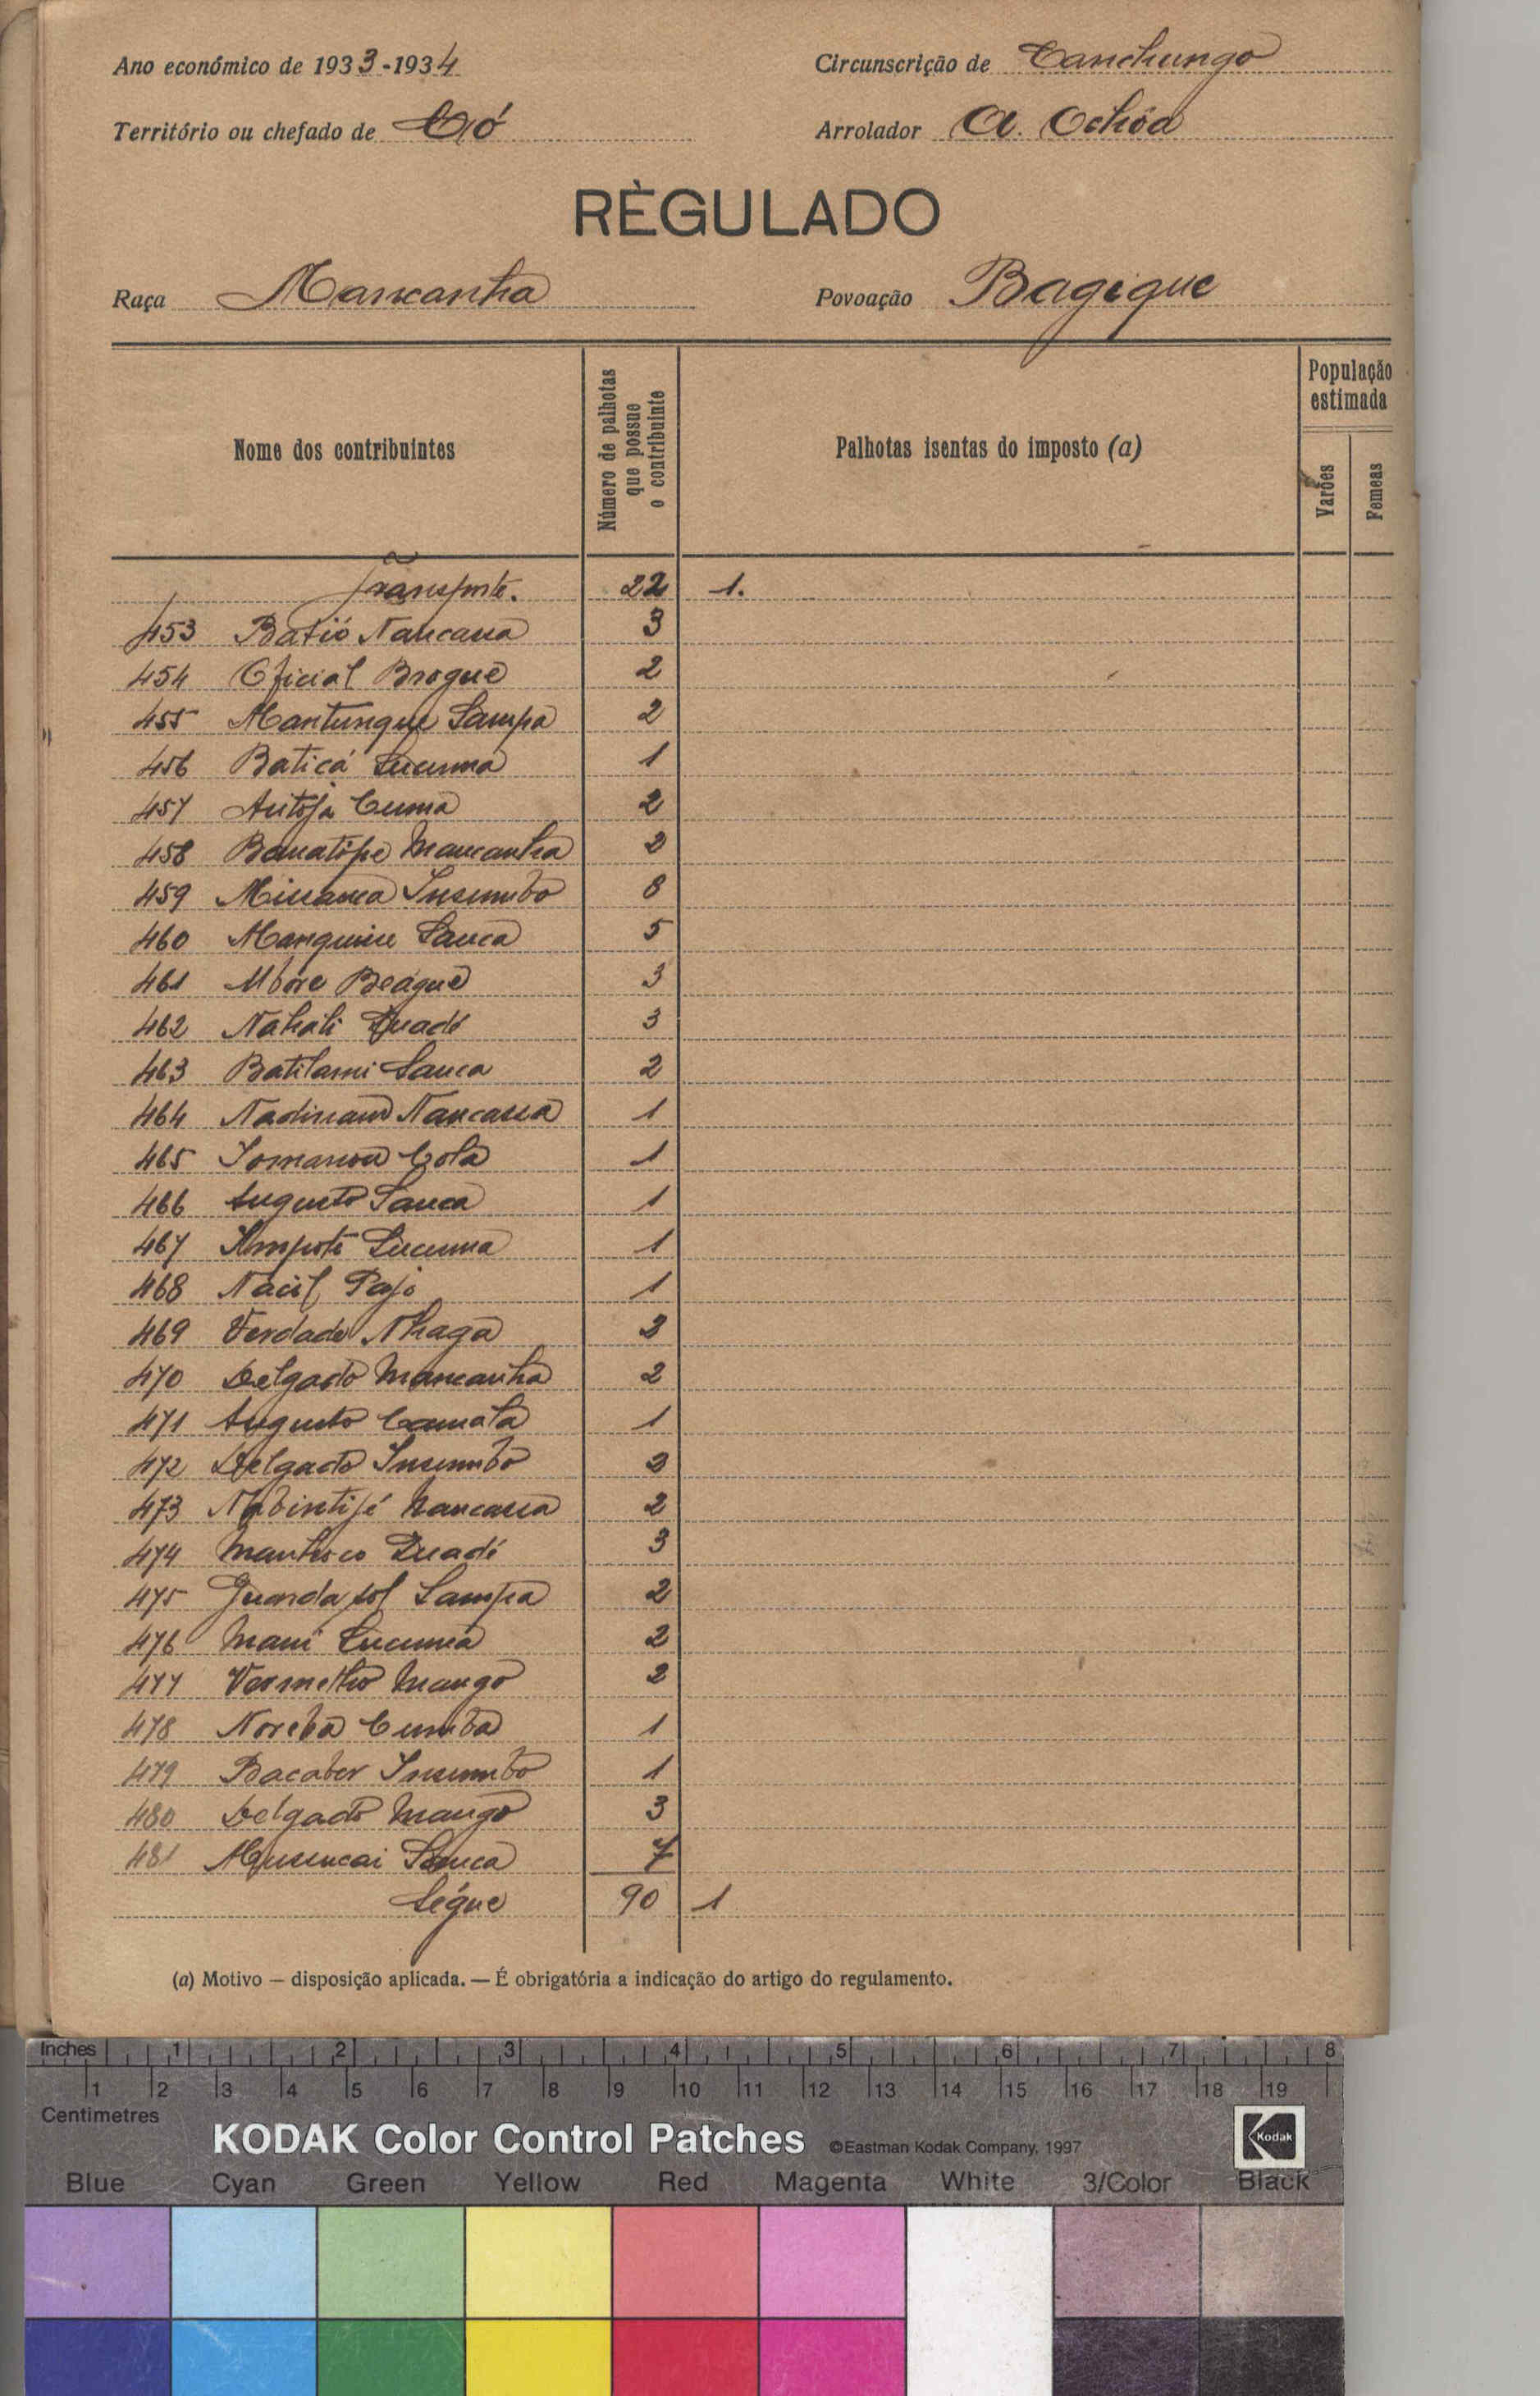 Ano económico de 1933-1934
Circunscrição de Canchungo
Território ou chefado de Có
Arrolador A. Ochôa
RÈGULADO
Raça Mancanha
Povoação Bagique
Nome dos contribuintes
Número de palhotas que possue o contribuinte
Palhotas isentas do imposto (a)
População estimada
Varões
Femeas
Transporte. 22 1.
453 Batió Nancassa 3
454 Oficial Broque 2
455 Mantungue Sampa 2
456 Baticá Lucuma 1
457 Cuma 2
458 Mancanha 2
459 Insumbo
460 Sanca 5
461 Mbore Beágue 3
462 Nahali 3
463 Batilami Sanca 2
464 Nancassa 1
465 Cola 1
466 Augusto Sanca 1
467 Lucuma 1
468 Nácil 1
469 Verdade Nhaga
470 Delgado Mancanha 2
471 Augusto Camala 1
472 Delgado Insumbo
473 Nancassa 2
474 3
475 Guarda sol Sampa 2
476 Lucuma 2
477 Vermelho Mango 2
478 Cumba 1
479 Insumbo 1
480 Delgado Mango 3
481 Sanca 7
Ségue 90 1
(a) Motivo — disposição aplicada. — É obrigatória a indicação do artigo do regulamento.
Inches 1 2 3 4 5 6 7 8
1 2 3 4 5 6 7 8 9 10 11 12 13 14 15 16 17 18 19
Centimetres
KODAK Color Control Patches ©Eastman Kodak Company, 1997 Kodak
Blue Cyan Green Yellow Red Magenta White 3/Color Black